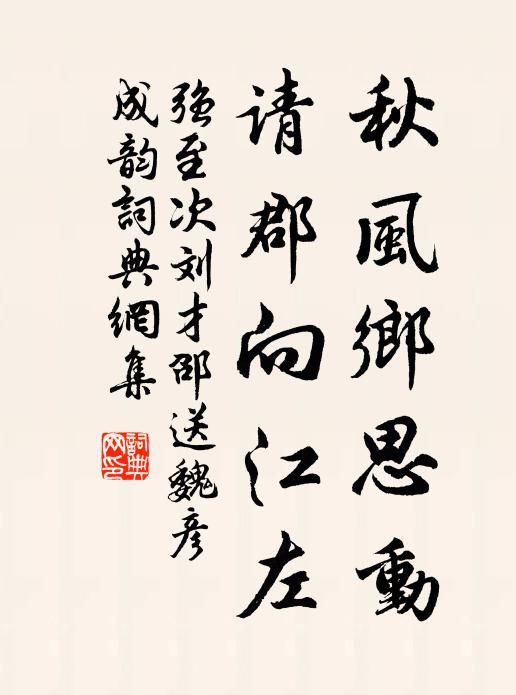 秋風鄉思動
请郡向江左
强至次刘才邵送魏彦
成韵詞典網集
詞典
网印